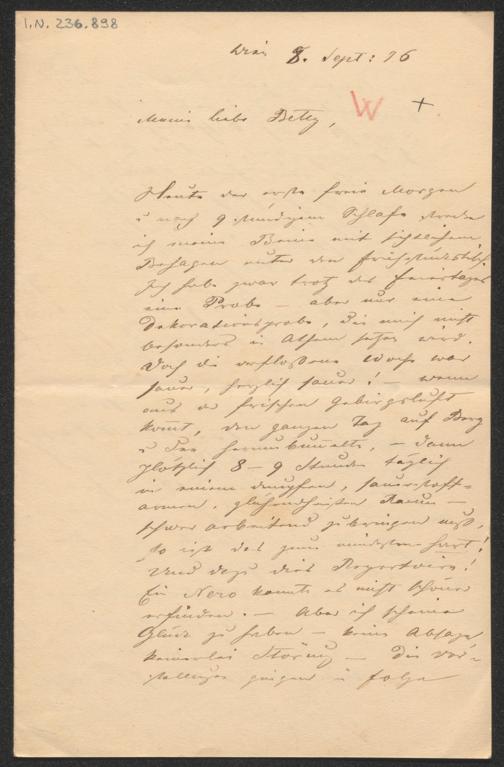 I.N. 236.898
Wien 8. Sept: 96
W +
Meine liebe Betty,
Heute der erste freie Morgen
u nach 9 stündigem Schlafe strecke
ich meine Beine mit sichtlichem
Behagen unter den Frühstückstisch.
Ich habe zwar trotz des Feiertages
eine Probe – aber nur eine
Dekorationsprobe, die mich nicht
besonders in Athem setzen wird.
Doch die verflossene Woche war
sauer, herzlich sauer! – wenn
aus der frischen Gebirgsluft
kom̄t, den ganzen Tag auf Berg
u See herumbum̄elte, – dann
plötzlich 8–9 Stunden täglich
in einem dumpfen, sauerstoff-
armen, glühendheißen Raum –
schwer arbeitend zubringen muß,
so ist das zum mindesten hart!
Und dazu dies Repertoire!
Ein Nero konnte es nicht schöner
erfinden. – Aber ich scheine
Glück zu haben – keine Absage
keinerlei Störung – die Vor-
stellungen gingen in Folge